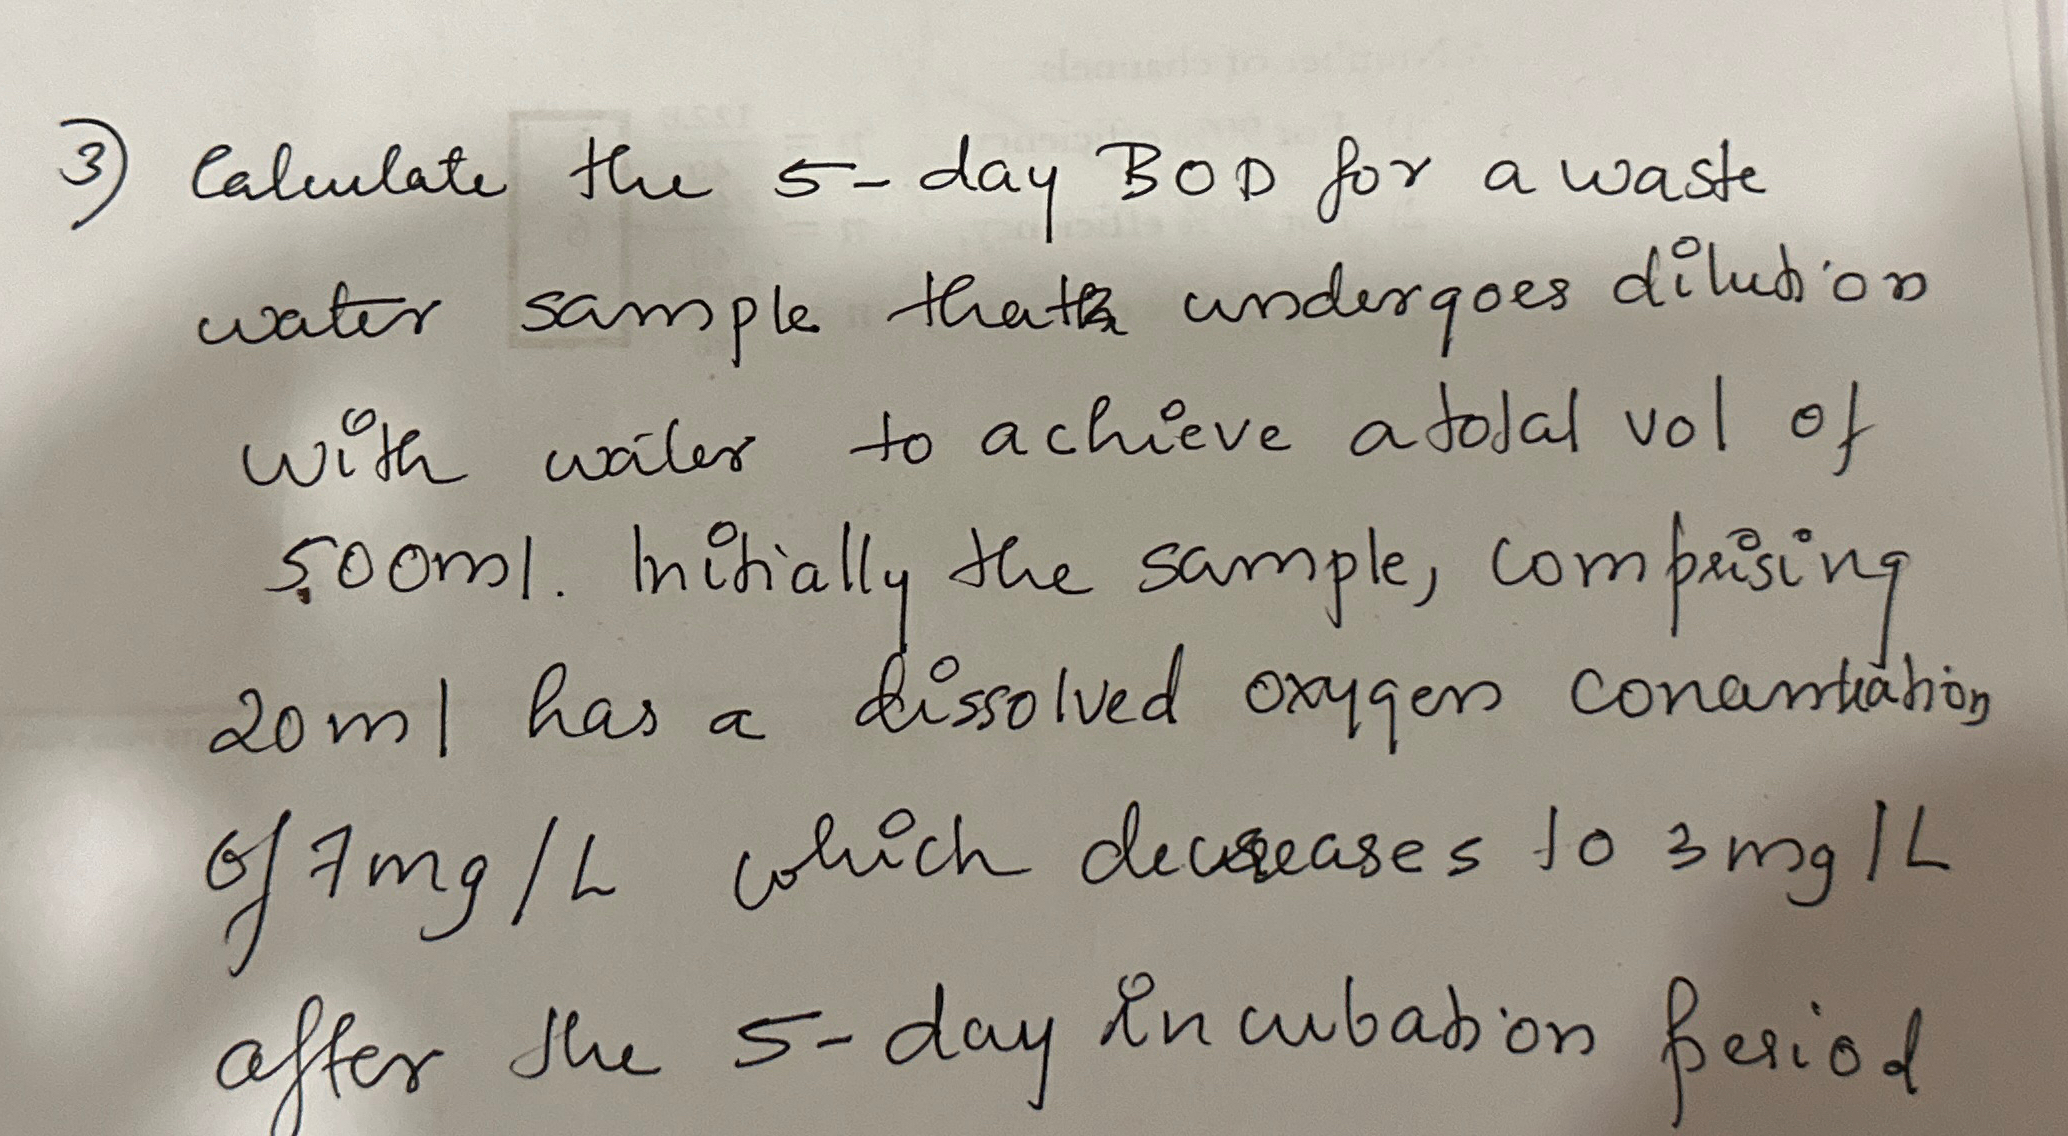 3) Calculate the 5-day BOD for a waste
water sample that undergoes dilution
with water to achieve a total vol of
500ml. Initially the sample, comprising
20ml has a dissolved oxygen concentration
of 7mg/L which decreases to 3mg/L
after the 5-day incubation period